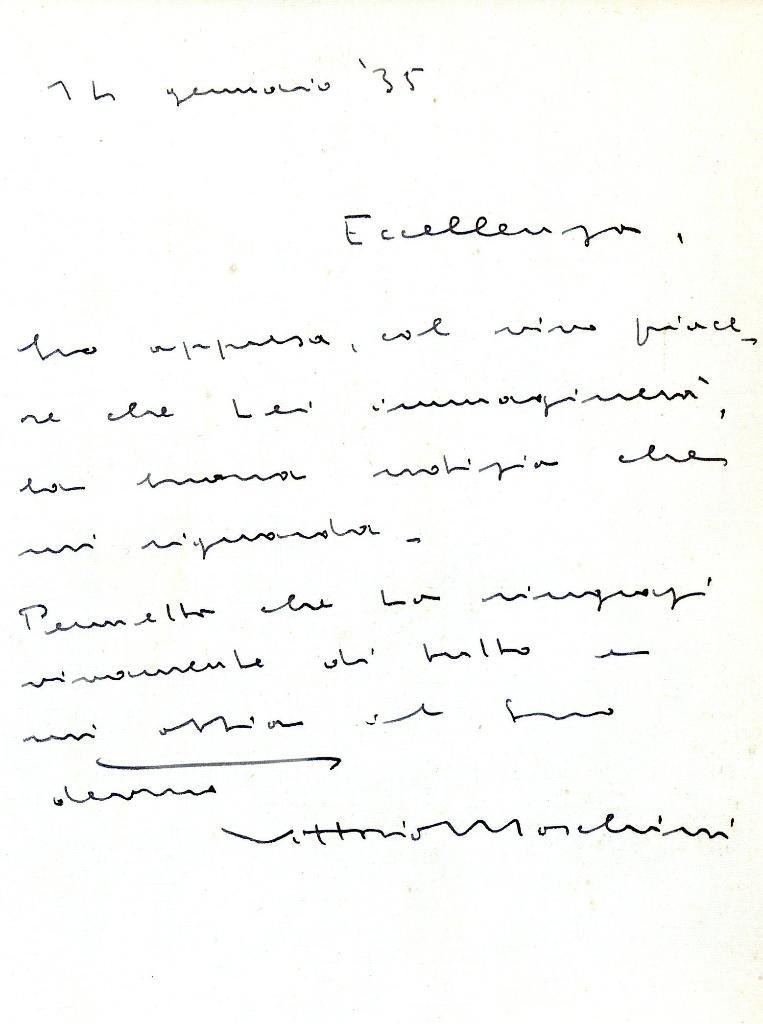 14 gennaio '35
Eccellenza,
ho appreso, col vivo piace-
re che Lei immaginerà,
la buona notizia che
mi riguarda -
Permetta che La ringrazi
vivamente di tutto e
mi abbia il Suo
devmo
Vittorio Moschini